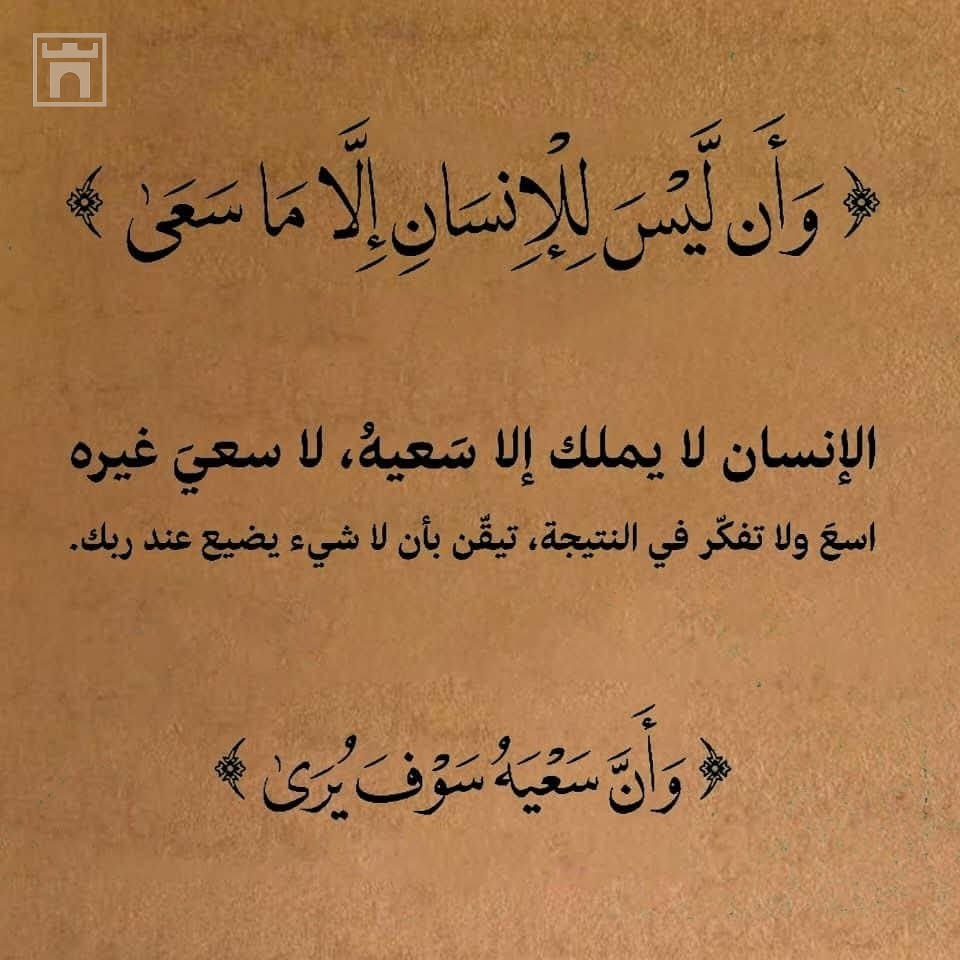 ﴿ وَأَن لَّيْسَ لِلْإِنسَانِ إِلَّا مَا سَعَىٰ ﴾
الإنسان لا يملك إلا سَعيهُ، لا سعيَ غيره
اسعَ ولا تفكّر في النتيجة، تيقّن بأن لا شيء يضيع عند ربك.
﴿ وَأَنَّ سَعْيَهُ سَوْفَ يُرَىٰ ﴾